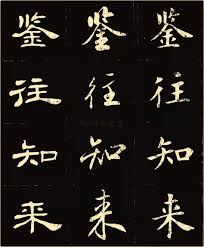 鉴往知来
鉴往知来
鉴往知来